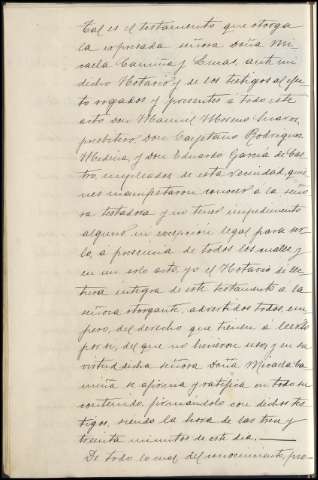 Tal es el testamento que otorga
la expresada señora Doña Mi-
caela Camuña y Limas, ante mi
dicho Notario y de los testigos al efec-
to rogados y presentes a todo este
acto Don Manuel Moreno Suarez,
presbitero, Don Cayetano Rodriguez
Medina, y Don Eduardo Garcia de Cas-
tro, empleados de esta vecindad, quie-
nes manifestaron conocer a la seño-
ra testadora y no tener impedimento
alguno ni excepcion legal para ser-
lo, a presencia de todos los cuales y
en un solo acto, yo el Notario di lec-
tura integra de este testamento a la
señora otorgante, advertidos todos, em-
pero, del derecho que tienen a leerlo
por si, del que no hicieron uso, y en su
virtud dicha señora Doña Micaela Ca-
muña se afirma y ratifica en todo su
contenido, firmandolo con dichos tes-
tigos, siendo la hora de las tres y
treinta minutos de este dia.
De todo lo cual, del conocimiento, pro-